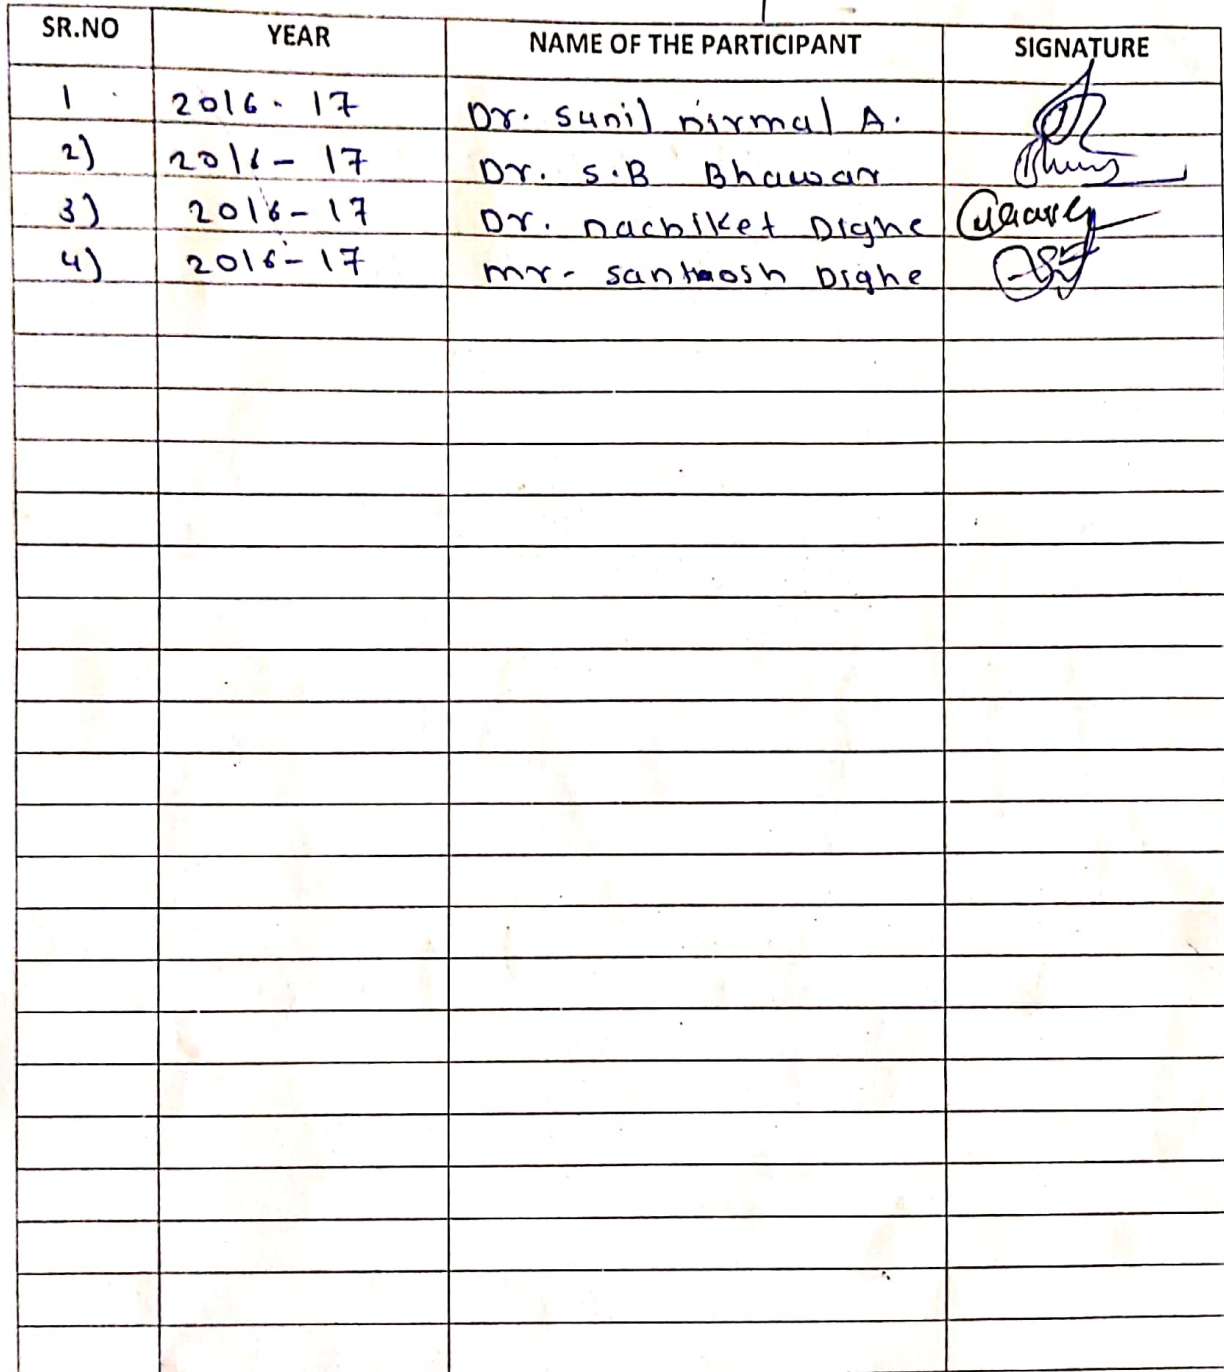 SR.NO YEAR NAME OF THE PARTICIPANT SIGNATURE
1 2016-17 Dr. Sunil nirmal A.
2) 2016-17 Dr. S.B Bhawar
3) 2016-17 Dr. nachiket Dighe
4) 2016-17 mr. santhosh Dighe